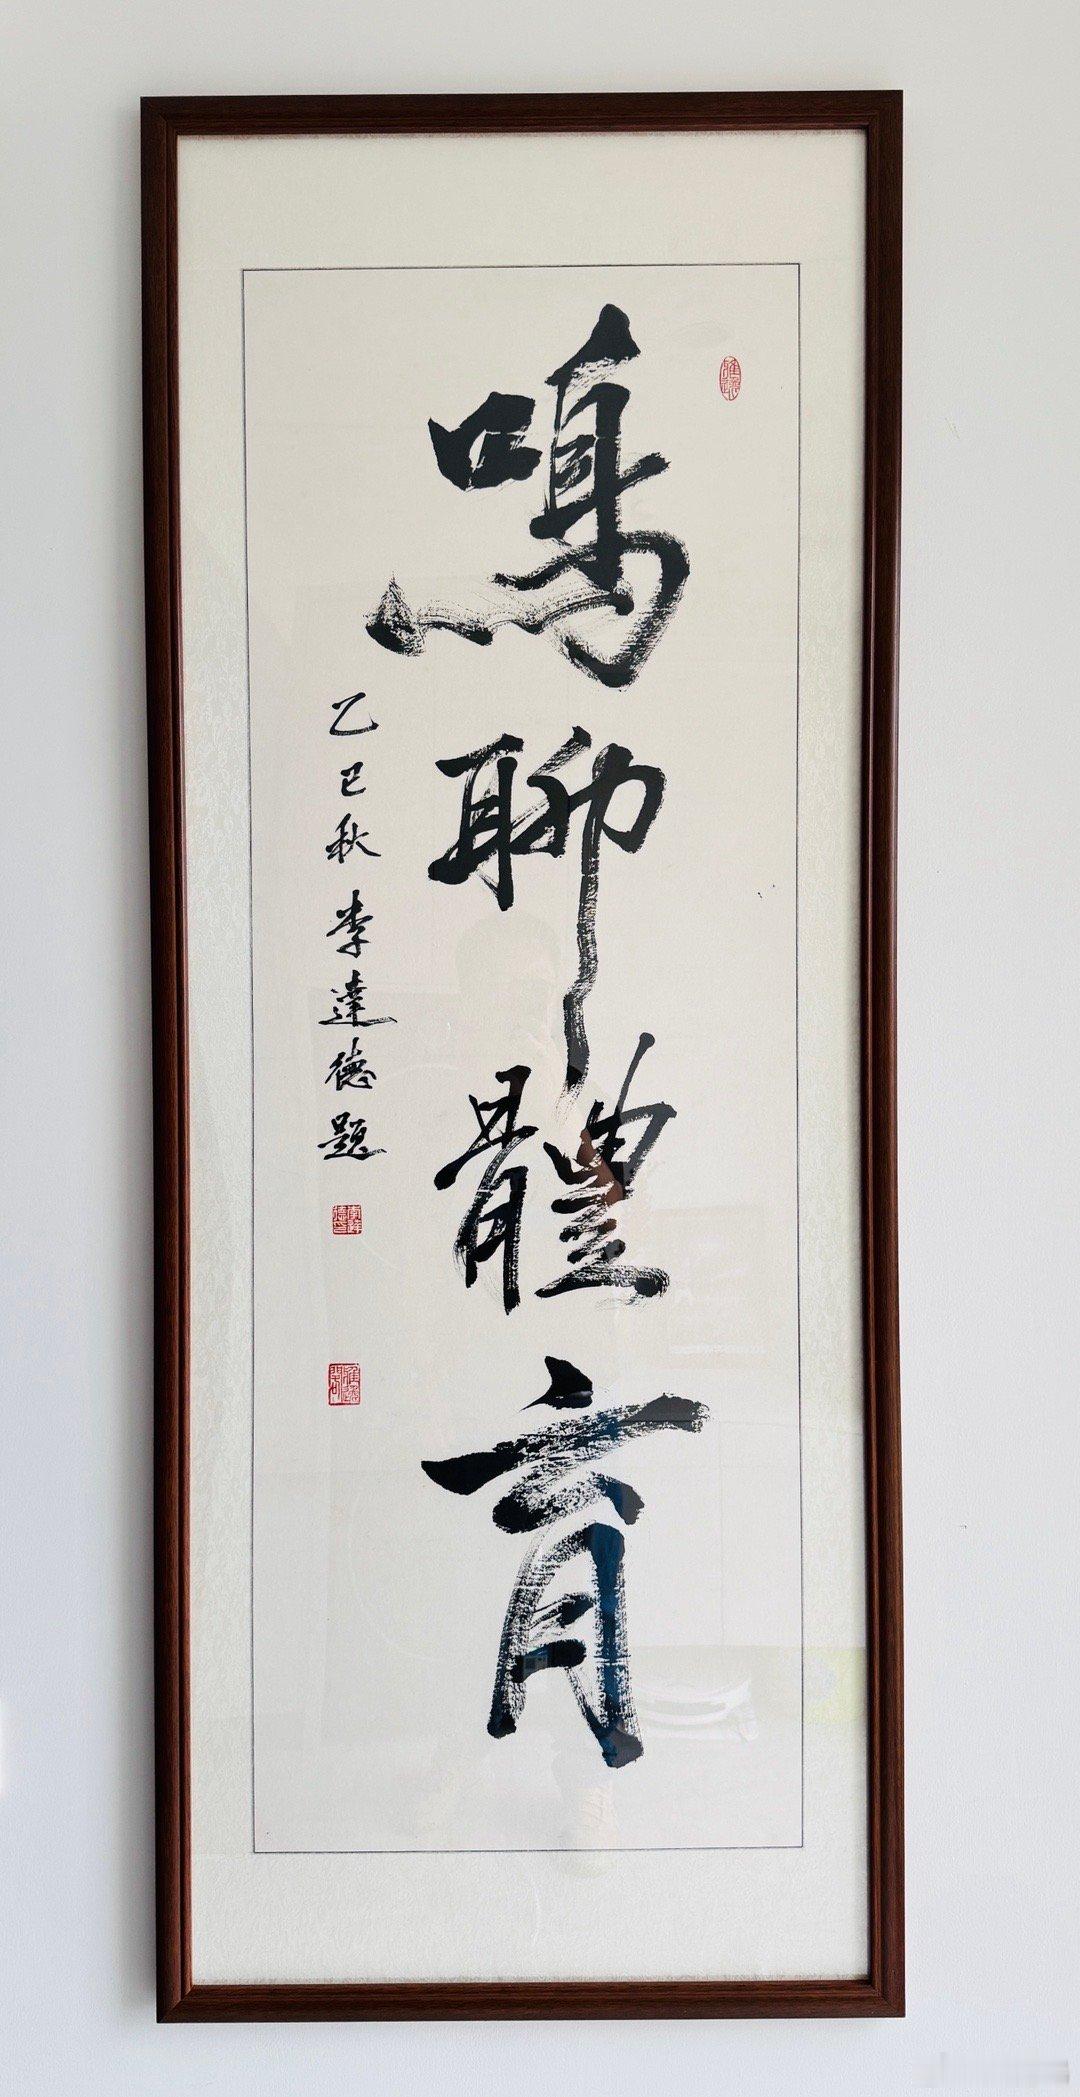 鳴聊體育
乙巳秋李達德題